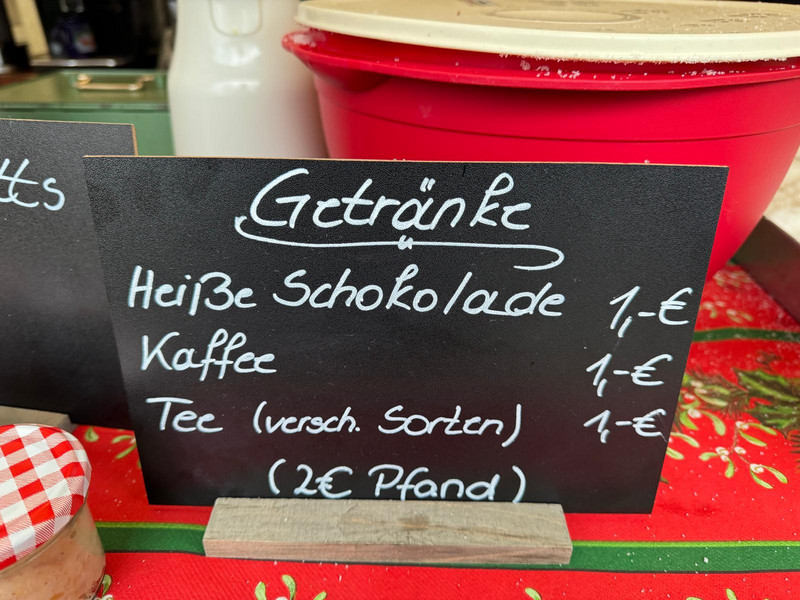 Getränke
Heiße Schokolade 1,-€
Kaffee 1,-€
Tee (versch. Sorten) 1,-€
(2€ Pfand)